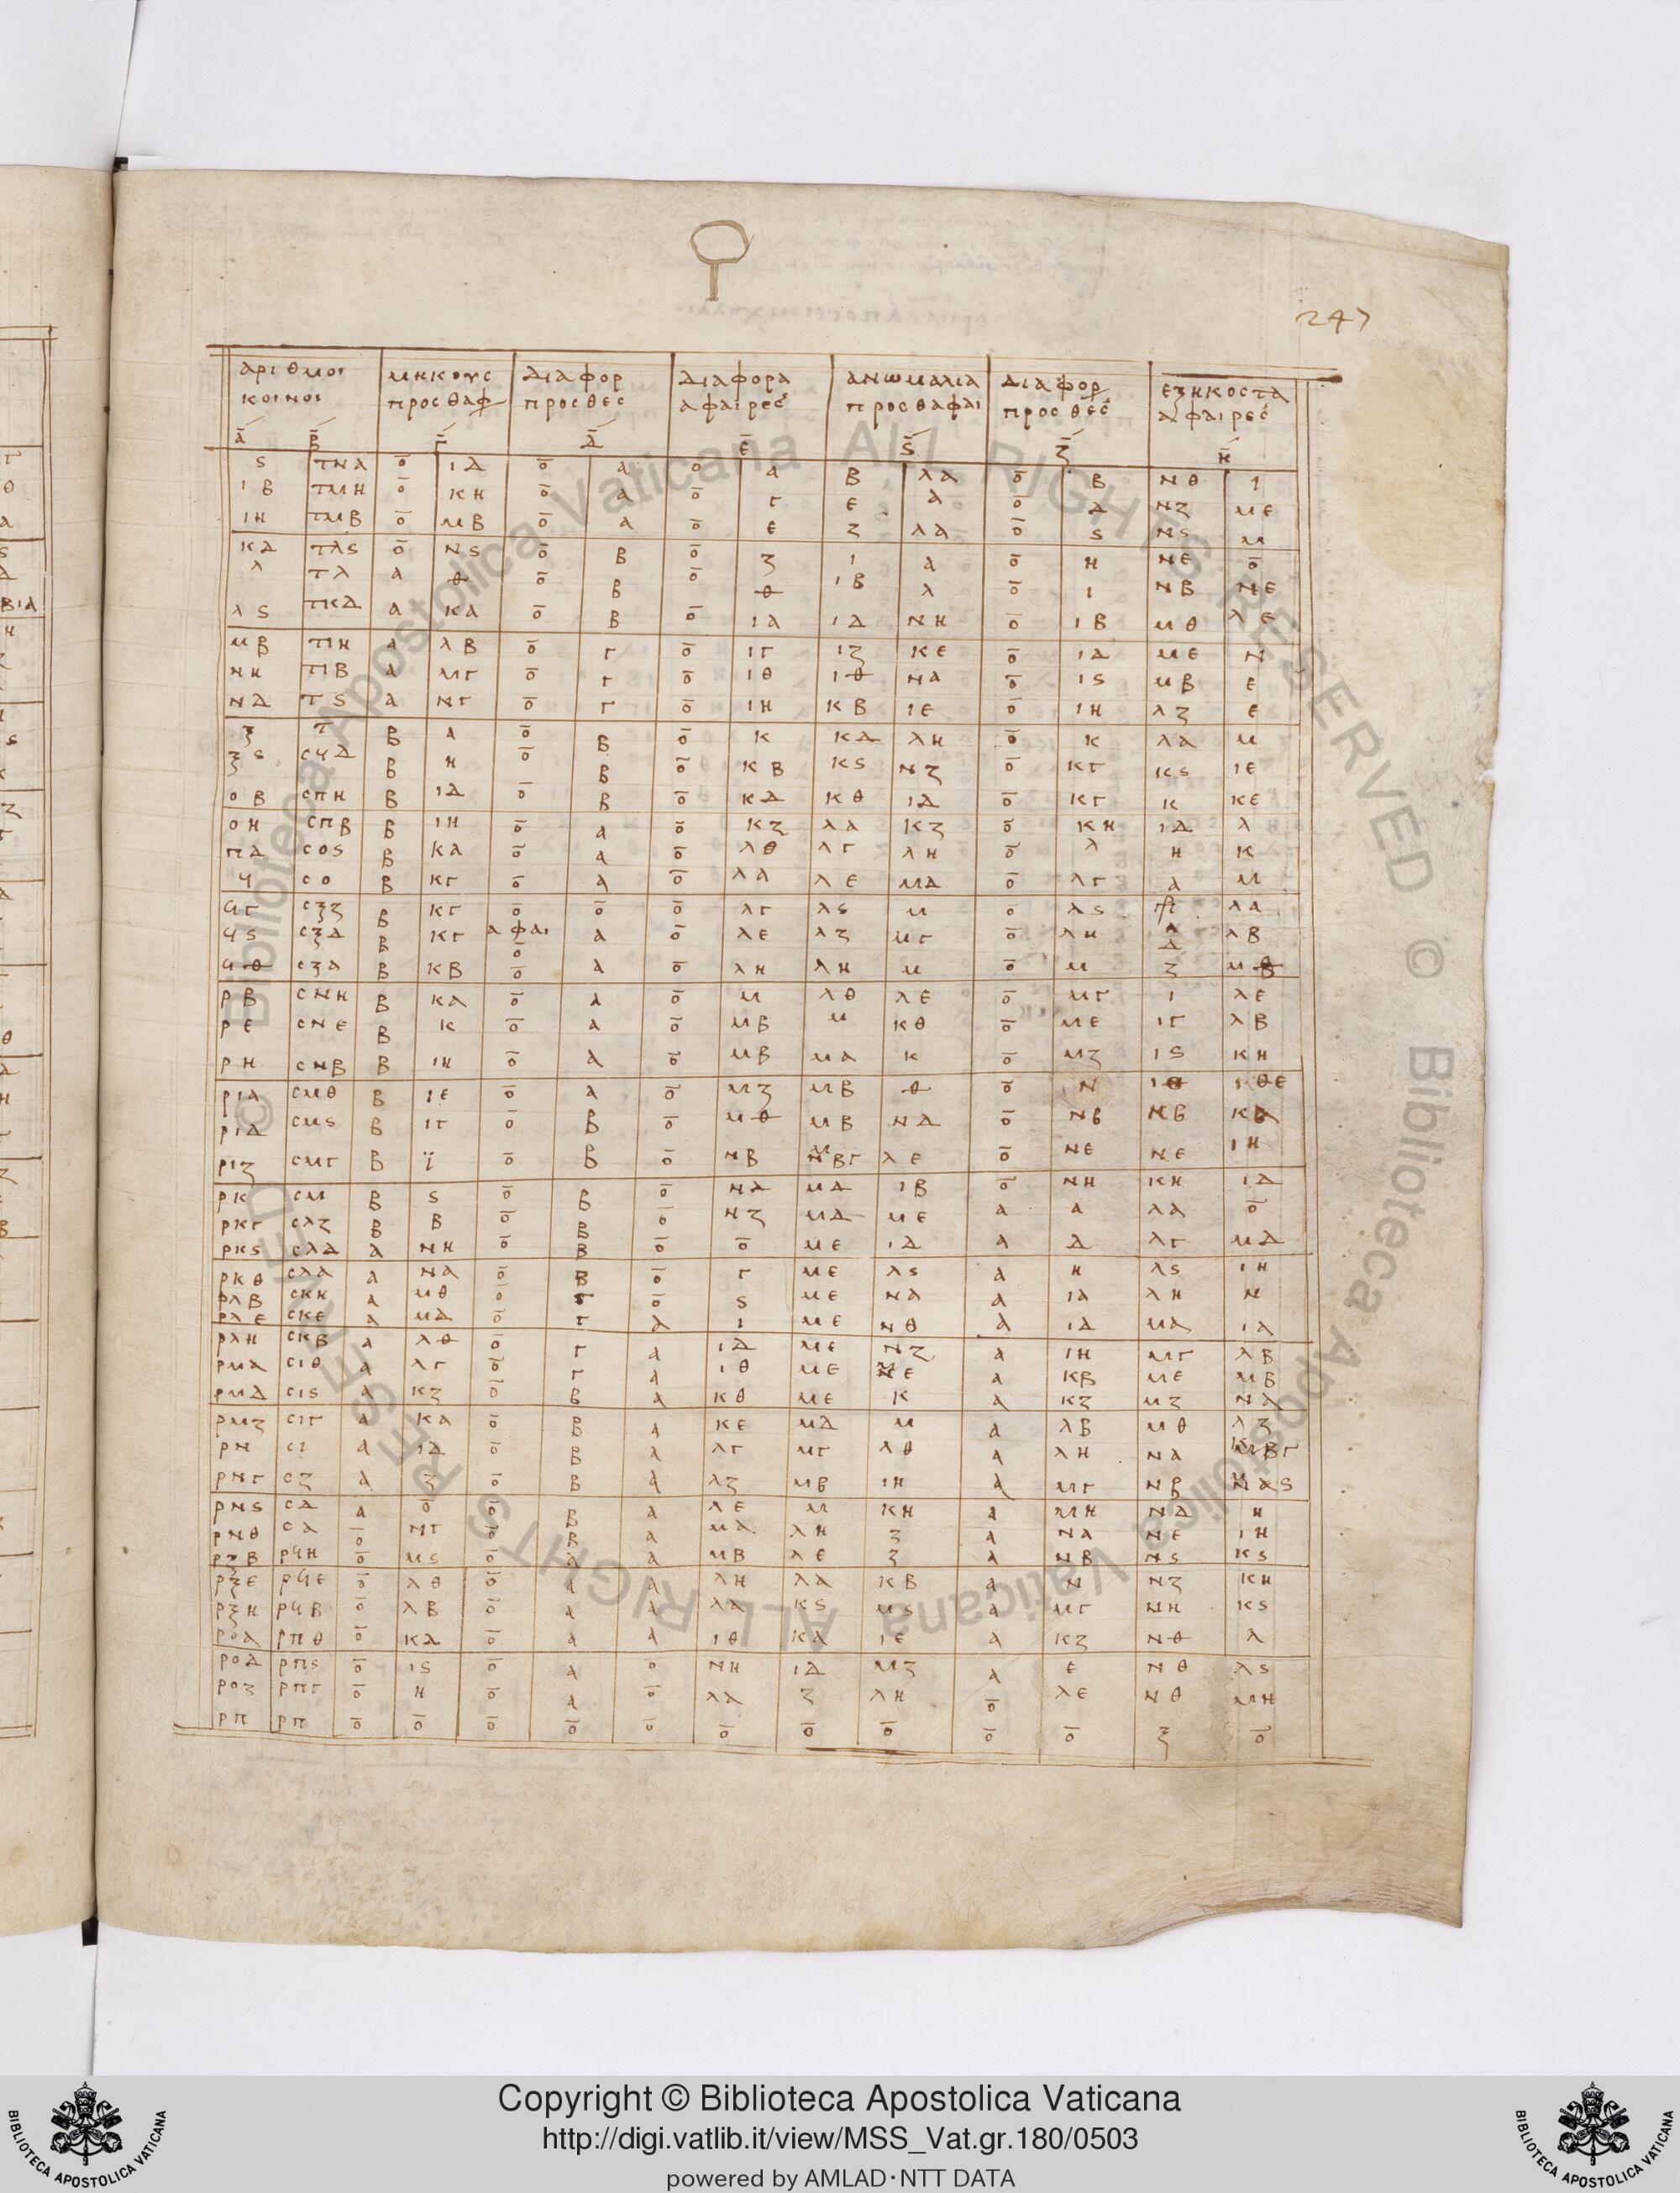 247
αριθμοι κοινοι μηκους προσθαφ διαφορ προσθες διαφορα αφαιρες ανωμαλια προσθαφαι διαφορ προσθες εξηκοστα αφαιρες
α β γ δ ε ϛ ζ η
ϛ τνα ο ιδ ο α ο α β λα ο β νθ ι
ιβ τμη ο κη ο α ο γ ε α ο δ νζ με
ιη τμβ ο μβ ο α ο ε ζ λα ο ϛ νϛ μ
κδ τλϛ ο νϛ ο β ο ζ ι α ο η νε ο
λ τλ α θ ο β ο θ ιβ λ ο ι νβ νε
λϛ τκδ α κα ο β ο ια ιδ νη ο ιβ μθ λε
μβ τιη α λβ ο γ ο ιγ ιζ κε ο ιδ με ν
μη τιβ α μγ ο γ ο ιθ ιθ να ο ιϛ μβ ε
νδ τϛ α νγ ο γ ο ιη κβ ιε ο ιη λζ ε
ξ τ β α ο β ο κ κδ λη ο κ λα μ
ξϛ ϲϥδ β η ο β ο κβ κϛ νζ ο κγ κϛ ιε
οβ ϲπη β ιδ ο β ο κδ κθ ιδ ο κγ κ κε
οη ϲπβ β ιη ο α ο κζ λα κζ ο κη ιδ λ
πδ ϲοϛ β κα ο α ο λθ λγ λη ο λ η κ
ϥ ϲο β κγ ο α ο λα λε μδ ο λγ α μ
ϥγ ϲξζ β κγ ο ο ο λγ λϛ μ ο λϛ λα
ϥϛ ϲξδ β κγ αφαι ο α ο λε λζ μγ ο λη δ λβ
ϥθ ϲξα β κβ ο α ο λη λη μ ο μ ζ μβ
ρβ ϲνη β κα ο α ο μ λθ λε ο μγ ι λε
ρε ϲνε β κ ο α ο μβ μ κθ ο με ιγ λβ
ρη ϲνβ β ιη ο α ο μβ μα κ ο μζ ιϛ κη
ρια ϲμθ β ιε ο α ο μζ μβ θ ο ν ιθ ιθε
ριδ ϲμϛ β ιγ ο β ο μθ μβ νδ ο νβ νβ κα
ριζ ϲμγ β ϊ ο β ο νβ μβγ λε ο νε νε ιη
ρκ ϲμ β ϛ ο β ο νδ μδ ιβ ο νη κη ιδ
ρκγ ϲλζ β β ο β ο νζ μδ με α α λα ο
ρκϛ ϲλδ α νη ο β ο ο με ιδ α δ λγ μδ
ρκθ ϲλα α να ο β ο γ με λϛ α η λϛ ιη
ρλβ ϲκη α μθ ο γ ο ϛ με να α ια λη ν
ρλε ϲκε α μδ ο γ α ι με νθ α ιδ μα ια
ρλη ϲκβ α λθ ο γ α ιδ με νζ α ιη μγ λβ
ρμα ϲιθ α λγ ο γ α ιθ με νε α κβ με μβ
ρμδ ϲιϛ α κζ ο β α κθ με κ α κζ μζ να
ρμζ ϲιγ α κα ο β α κε μδ μ α λβ μθ λζ
ρν ϲι α ιδ ο β α λγ μγ λθ α λη να μβγ
ρνγ ϲζ α ζ ο β α λζ μβ ιη α μγ νβ ναϛ
ρνϛ ϲδ α ο ο β α λε μ κη α μη νδ η
ρνθ ϲα ο νγ ο β α μα λη ζ α να νε ιη
ρξβ ρϥη ο μϛ ο α α μβ λε ζ α νβ νϛ κϛ
ρξε ρϥε ο λθ ο α α λη λα κβ α ν νζ κη
ρξη ρϥβ ο λβ ο α α λα κϛ μϛ α μγ νη κϛ
ροα ρπθ ο κδ ο α α ιθ κα ιε α κζ νθ λ
ροδ ρπϛ ο ιϛ ο α ο νη ιδ μζ α ε νθ λϛ
ροζ ρπγ ο η ο α ο λα ζ λη ο λε νθ μη
ρπ ρπ ο ο ο ο ο ο ο ο ο ο ξ ο
Copyright © Biblioteca Apostolica Vaticana
http://digi.vatlib.it/view/MSS_Vat.gr.180/0503
powered by AMLAD·NTT DATA